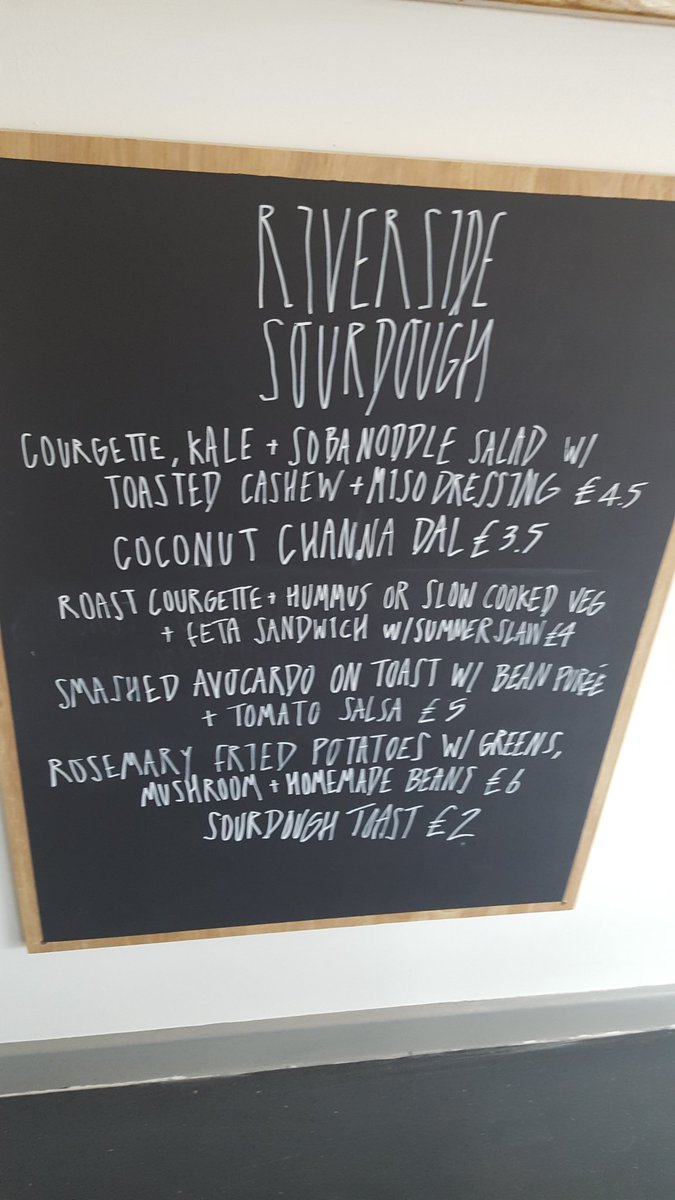 RIVERSIDE
SOURDOUGH
COURGETTE, KALE + SOBA NODDLE SALAD W/
TOASTED CASHEW + MISO DRESSING £4.5
COCONUT CHANNA DAL £3.5
ROAST COURGETTE + HUMMUS OR SLOW COOKED VEG
+ FETA SANDWICH W/ SUMMER SLAW £4
SMASHED AVOCARDO ON TOAST W/ BEAN PUREÉ
+ TOMATO SALSA £5
ROSEMARY FRIED POTATOES W/ GREENS,
MUSHROOM + HOMEMADE BEANS £6
SOURDOUGH TOAST £2